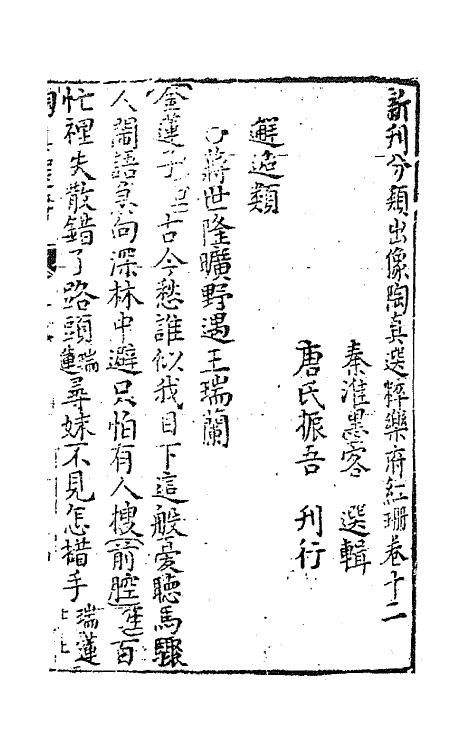 新刊分類出像陶真選粹樂府紅珊卷十二
秦淮墨客 選輯
唐氏振吾 刊行
邂逅類
蔣世隆曠野遇王瑞蘭
金蓮子 古今愁誰似我目下這般憂聽馬驟
人鬧語急向深林中避只怕有人搜前腔 百
忙裡失散錯了路頭瑞蓮尋妹不見怎措手瑞蓮